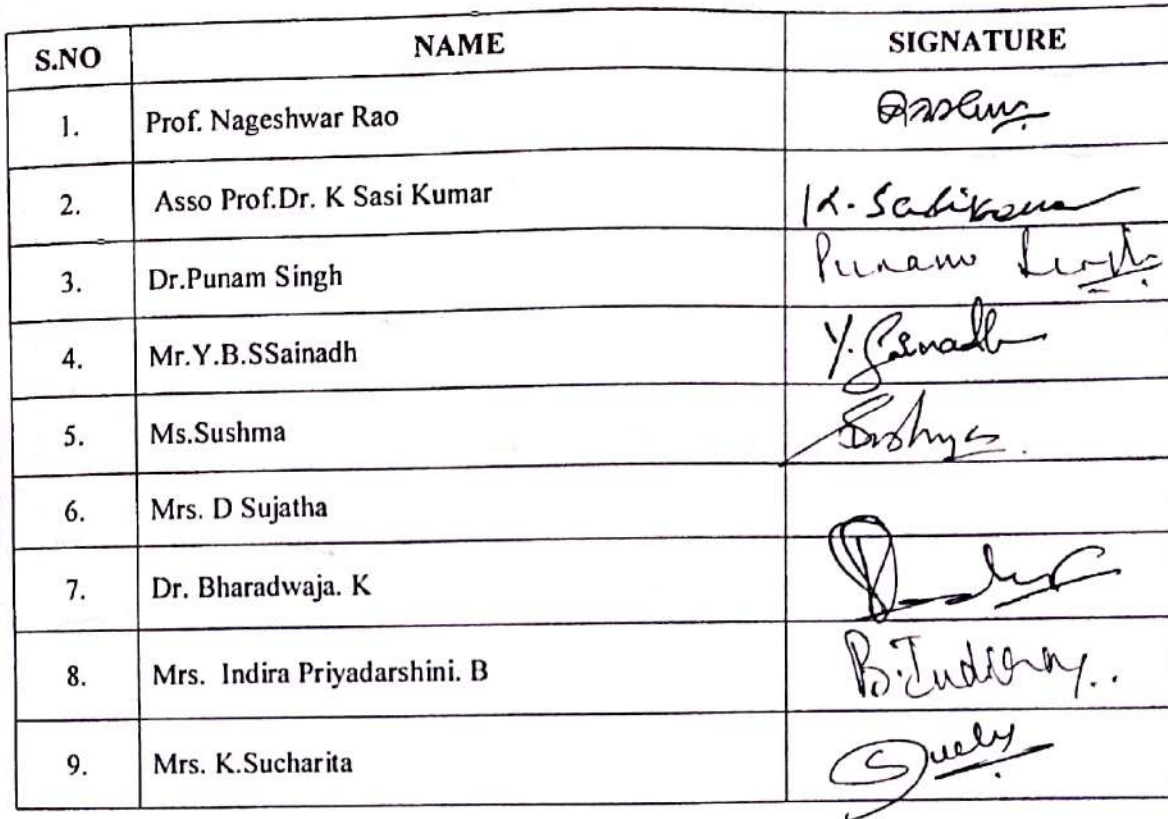 S.NO NAME SIGNATURE
1. Prof. Nageshwar Rao
2. Asso Prof.Dr. K Sasi Kumar K. Sasikumar
3. Dr.Punam Singh Punam Singh
4. Mr.Y.B.SSainadh Y. Sainadh
5. Ms.Sushma
6. Mrs. D Sujatha
7. Dr. Bharadwaja. K
8. Mrs. Indira Priyadarshini. B
9. Mrs. K.Sucharita